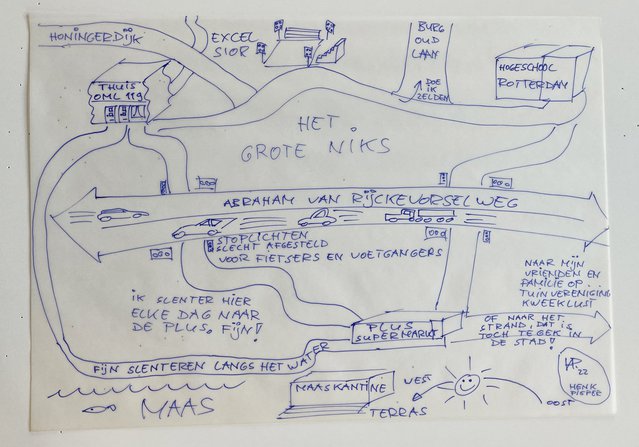 HONINGERDIJK
EXCEL
SIOR
BURG
OUD
LAAN
DOE
IK
ZELDEN
HOGESCHOOL
ROTTERDAM
THUIS
OML 119
HET.
GROTE NIKS
ABRAHAM VAN RIJCKEVORSELWEG
STOPLICHTEN
SLECHT AFGESTELD
VOOR FIETSERS EN VOETGANGERS
IK SLENTER HIER
ELKE DAG NAAR
DE PLUS. FIJN!
PLUS
SUPERMARKT
NAAR MIJN
VRIENDEN EN
FAMILIE OP...
TUINVERENIGING
KWEEKLUST
OF NAAR HET
STRAND, DAT IS
TOCH TE GEK IN
DE STAD!
FIJN SLENTEREN LANGS HET WATER
MAAS
MAASKANTINE
TERRAS
WEST
OOST
HP.
'22
HENK
PIEPER